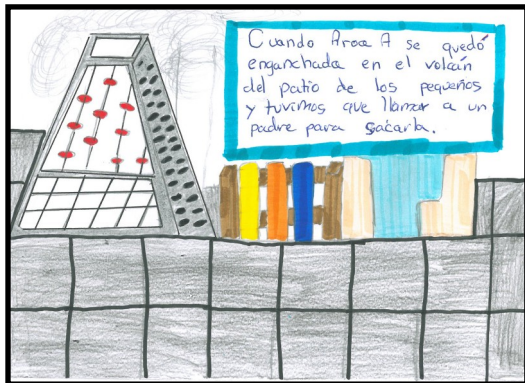 Cuando Aroa A se quedó
enganchada en el volcán
del patio de los pequeños
y tuvimos que llamar a un
padre para sacarla.